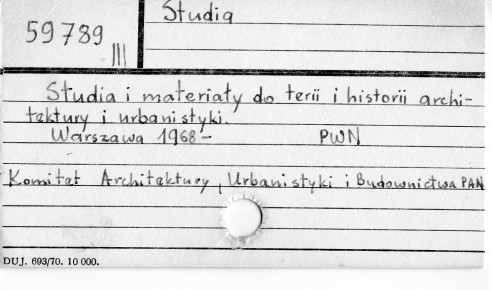 Studia
59789
III
Studia i materiały do terii i historii archi-
tektury i urbanistyki.
Warszawa 1968- PWN
Komitet Architektury, Urbanistyki i Budownictwa PAN
DUJ. 693/70. 10 000.